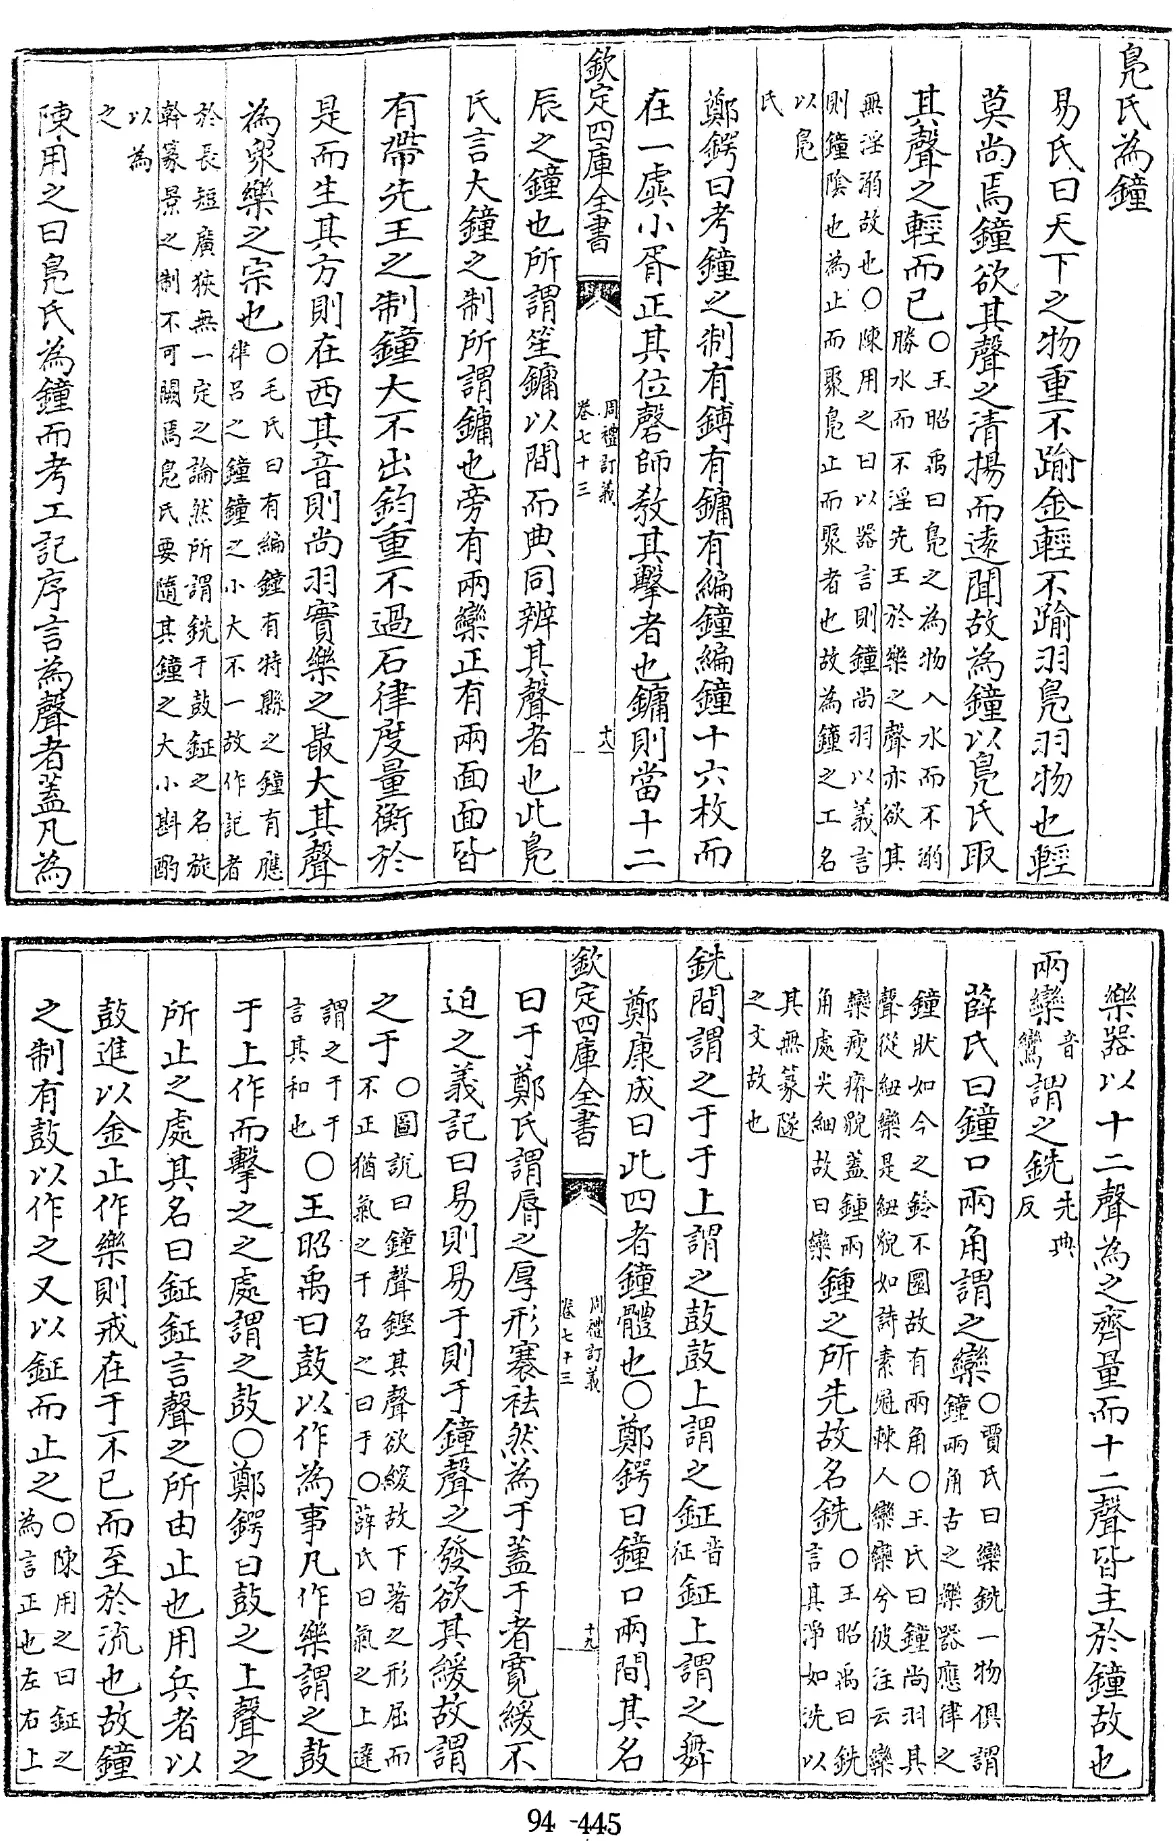 鳧氏為鐘
易氏曰天下之物重不踰金輕不踰羽鳧羽物也輕
莫尚焉鐘欲其聲之清揚而遠聞故為鐘以鳧氏取
其聲之輕而已○王昭禹曰鳧之為物入水而不溺
勝水而不淫先王於樂之聲亦欲其
無淫溺故也○陳用之曰以器言則鐘尚羽以義言
則鐘陰也為止而聚鳧止而聚者也故為鐘之工名
以鳧
氏
鄭鍔曰考鐘之制有鎛有鏞有編鐘編鐘十六枚而
在一虡小胥正其位磬師教其擊者也鏞則當十二
欽定四庫全書
周禮訂義
卷七十三
十八
辰之鐘也所謂笙鏞以間而典同辨其聲者也此鳧
氏言大鐘之制所謂鏞也旁有兩欒正有兩面面皆
有帶先王之制鐘大不出鈞重不過石律度量衡於
是而生其方則在西其音則尚羽實樂之最大其聲
為衆樂之宗也○毛氏曰有編鐘有特縣之鐘有應
律呂之鐘鐘之小大不一故作記者
於長短廣狹無一定之論然所謂銑于鼓鉦之名旋
幹篆景之制不可闕焉鳧氏要隨其鐘之大小斟酌
以為
之
陳用之曰鳧氏為鐘而考工記序言為聲者蓋凡為
樂器以十二聲為之齊量而十二聲皆主於鐘故也
兩欒音
鸞謂之銑先典
反
薛氏曰鐘口兩角謂之欒○賈氏曰欒銑一物俱謂
鐘兩角古之樂器應律之
鐘狀如今之鈴不圜故有兩角○王氏曰鐘尚羽其
聲從紐欒是紐貌如詩素冠棘人欒欒兮彼注云欒
欒瘦瘠貌蓋鍾兩
角處尖細故曰欒鍾之所先故名銑○王昭禹曰銑
言其淨如洗以
其無篆隧
之文故也
銑間謂之于于上謂之鼓鼓上謂之鉦音
征鉦上謂之舞
鄭康成曰此四者鐘體也○鄭鍔曰鐘口兩間其名
欽定四庫全書
周禮訂義
卷七十三
十九
曰于鄭氏謂脣之厚形褰袪然為于蓋于者寬緩不
迫之義記曰易則易于則于鐘聲之發欲其緩故謂
之于○圖說曰鐘聲鏗其聲欲緩故下著之形屈而
不正猶氣之于名之曰于○薛氏曰氣之上達
謂之于于
言其和也○王昭禹曰鼓以作為事凡作樂謂之鼓
于上作而擊之之處謂之鼓○鄭鍔曰鼓之上聲之
所止之處其名曰鉦鉦言聲之所由止也用兵者以
鼓進以金止作樂則戒在于不已而至於流也故鐘
之制有鼓以作之又以鉦而止之○陳用之曰鉦之
為言正也左右上
94-445